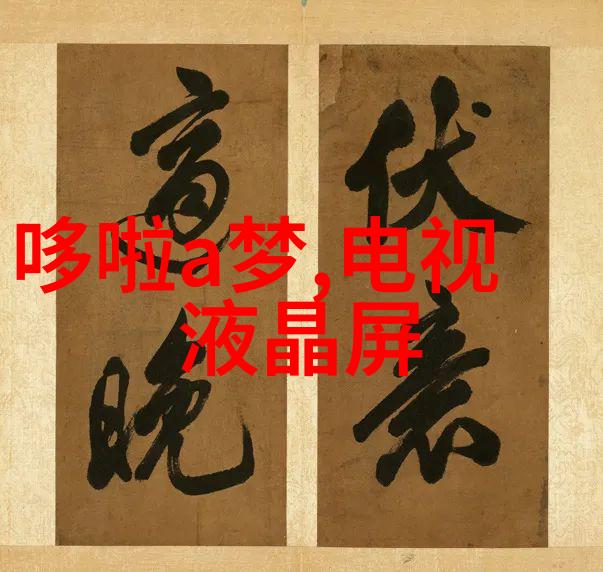 哆啦a梦,电视
液晶屏
伏
晚